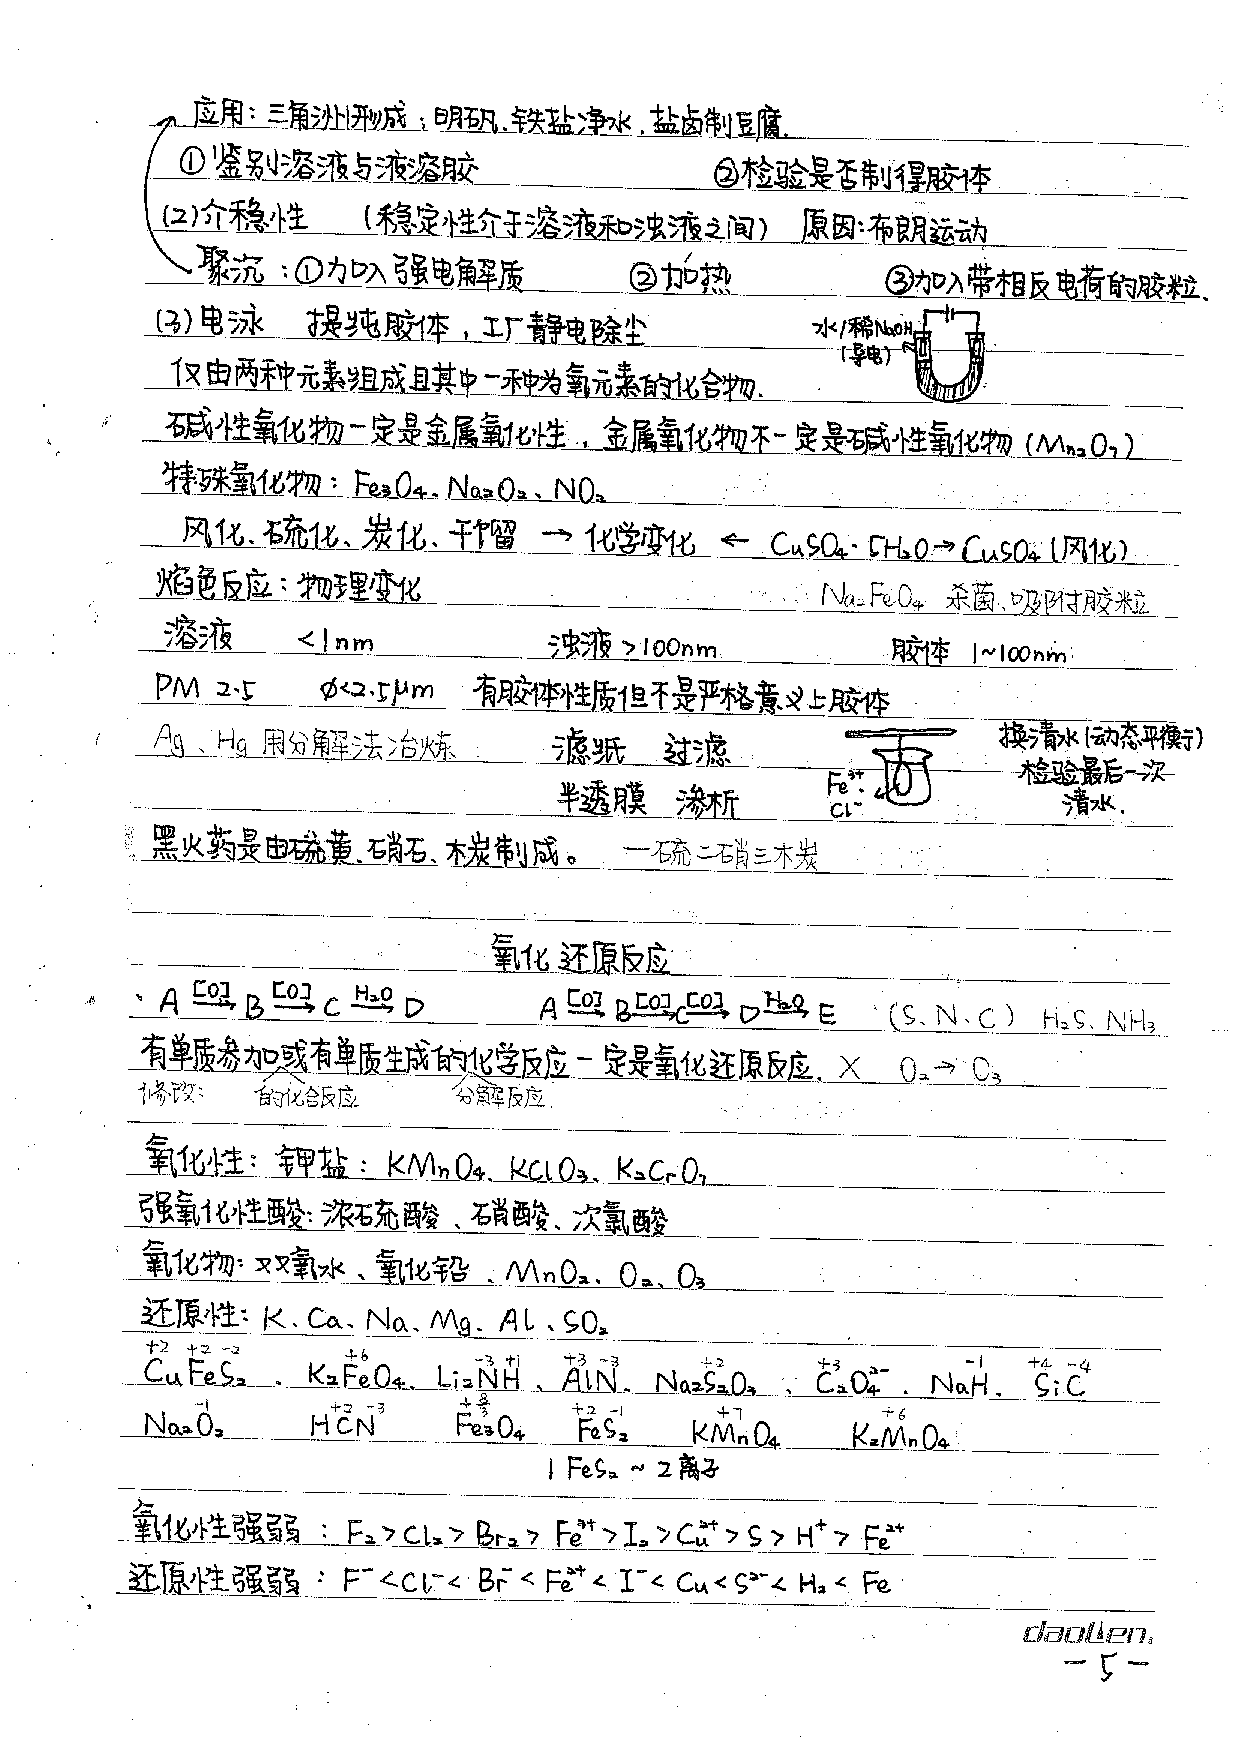 应用：三角洲形成；明矾、铁盐净水，盐卤制豆腐.
①鉴别溶液与液溶胶 ②检验是否制得胶体
(2)介稳性 (稳定性介于溶液和浊液之间) 原因：布朗运动
聚沉：①加入强电解质 ②加热 ③加入带相反电荷的胶粒.
(3)电泳 提纯胶体，工厂静电除尘 水/稀NaOH
(导电)
仅由两种元素组成且其中一种为氧元素的化合物.
碱性氧化物一定是金属氧化性，金属氧化物不一定是碱性氧化物(Mn₂O₇)
特殊氧化物：Fe₃O₄、Na₂O₂、NO₂
风化、硫化、炭化、干馏 → 化学变化 ← CuSO₄·5H₂O→CuSO₄(风化)
焰色反应：物理变化 Na₂FeO₄ 杀菌、吸附胶粒
溶液 <1nm 浊液>100nm 胶体 1~100nm
PM 2.5 φ<2.5μm 有胶体性质但不是严格意义上胶体
Ag、Hg 用分解法冶炼 滤纸 过滤 换清水(动态平衡)
半透膜 渗析 Fe³⁺ Cl⁻ 检验最后一次
清水.
黑火药是由硫黄、硝石、木炭制成。 一硫二硝三木炭
氧化还原反应
A [O]→ B [O]→ C H₂O→ D A [O]→ B [O]→ C [O]→ D H₂O→ E (S、N、C) H₂S、NH₃
有单质参加或有单质生成的化学反应一定是氧化还原反应. × O₂→O₃
修改： 的化合反应 分解反应
氧化性：钾盐：KMnO₄、KClO₃、K₂CrO₇
强氧化性酸：浓硫酸、硝酸、次氯酸
氧化物：双氧水、氧化铅、MnO₂、O₂、O₃
还原性：K、Ca、Na、Mg、Al、SO₂
+2 +2 -2 +6 -3 +1 +3 -3 +2 +3 -1 +4 -4
CuFeS₂、K₂FeO₄、Li₂NH、AlN、Na₂S₂O₃、C₂O₄²⁻、NaH、SiC
-1 +2 -3 +8/3 +2 -1 +7 +6
Na₂O₂ HCN Fe₃O₄ FeS₂ KMnO₄ K₂MnO₄
1 FeS₂ ~ 2离子
氧化性强弱：F₂>Cl₂>Br₂>Fe³⁺>I₂>Cu²⁺>S>H⁺>Fe²⁺
还原性强弱：F⁻<Cl⁻<Br⁻<Fe²⁺<I⁻<Cu<S²⁻<H₂<Fe
daolien
-5-